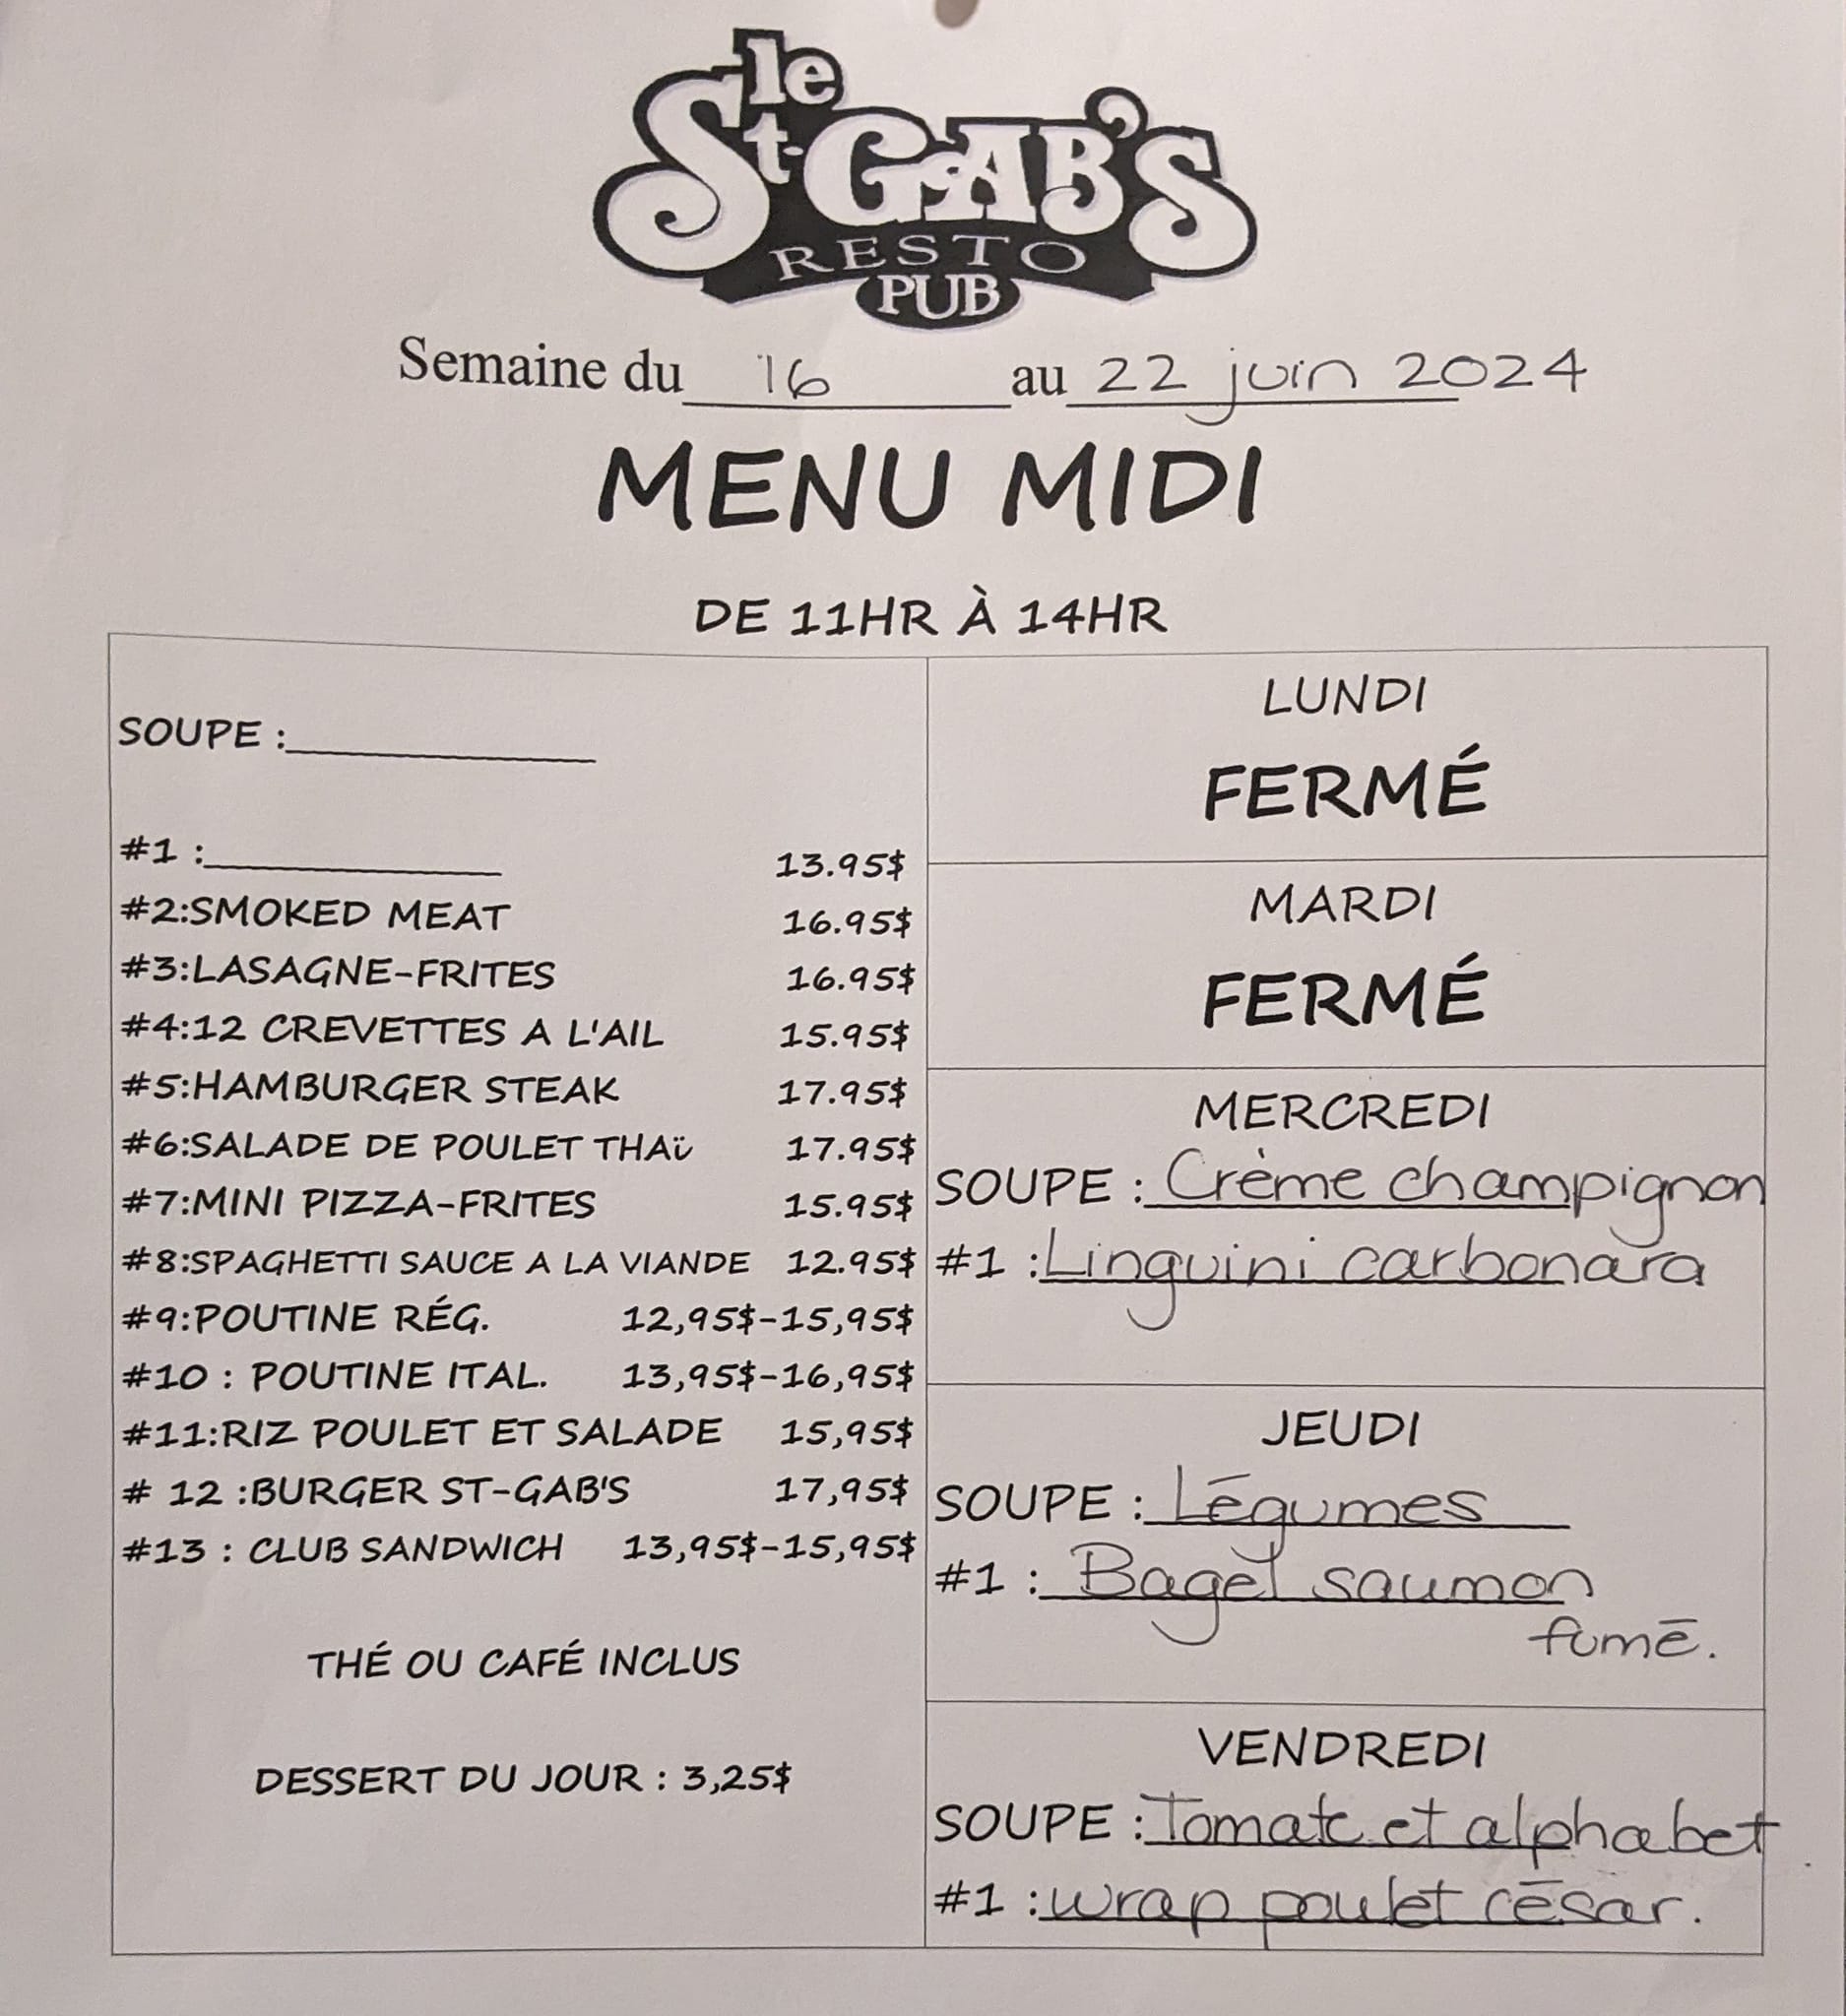 le
St-GAB'S
RESTO
PUB
Semaine du 16 au 22 juin 2024
MENU MIDI
DE 11HR À 14HR
SOUPE :
#1 : 13.95$
#2:SMOKED MEAT 16.95$
#3:LASAGNE-FRITES 16.95$
#4:12 CREVETTES A L'AIL 15.95$
#5:HAMBURGER STEAK 17.95$
#6:SALADE DE POULET THAï 17.95$
#7:MINI PIZZA-FRITES 15.95$
#8:SPAGHETTI SAUCE A LA VIANDE 12.95$
#9:POUTINE RÉG. 12,95$-15,95$
#10 : POUTINE ITAL. 13,95$-16,95$
#11:RIZ POULET ET SALADE 15,95$
# 12 :BURGER ST-GAB'S 17,95$
#13 : CLUB SANDWICH 13,95$-15,95$
THÉ OU CAFÉ INCLUS
DESSERT DU JOUR : 3,25$
LUNDI
FERMÉ
MARDI
FERMÉ
MERCREDI
SOUPE : Crème champignon
#1 : Linguini carbonara
JEUDI
SOUPE : Légumes
#1 : Bagel saumon
fumé.
VENDREDI
SOUPE : Tomate et alphabet
#1 : wrap poulet césar.